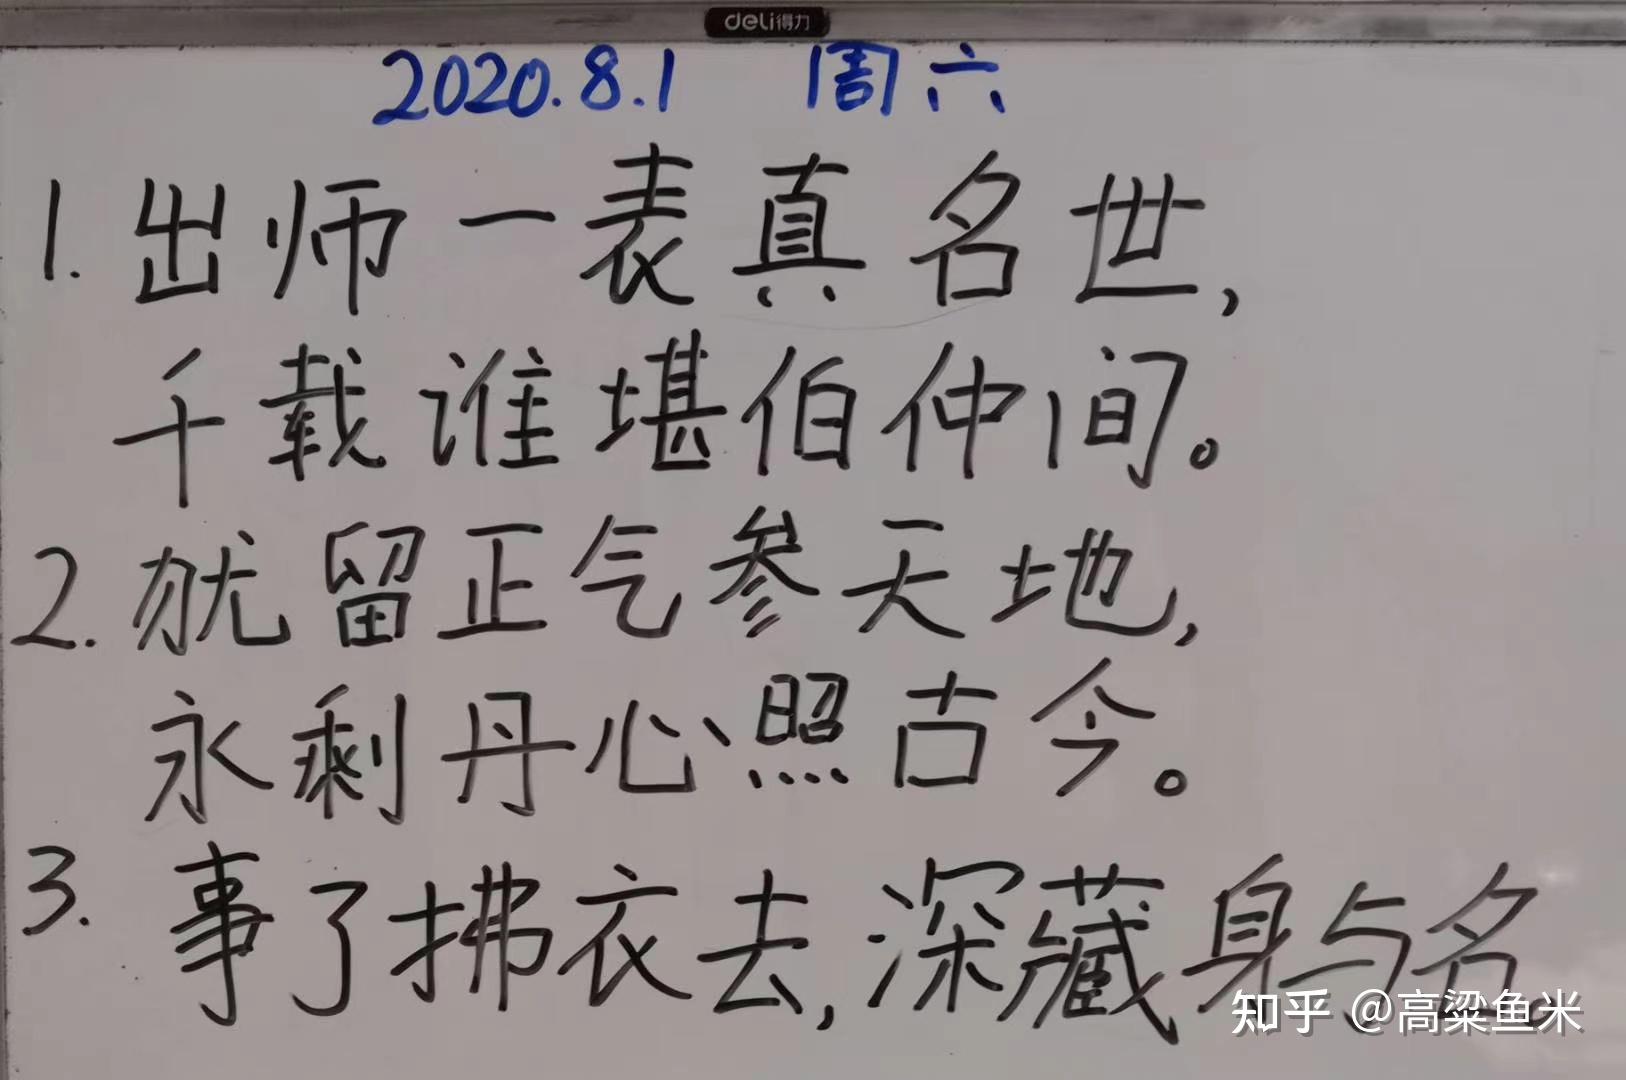 deli得力
2020.8.1 周六
1. 出师一表真名世,
千载谁堪伯仲间。
2. 犹留正气参天地,
永剩丹心照古今。
3. 事了拂衣去,深藏身与名。
知乎 @高粱鱼米